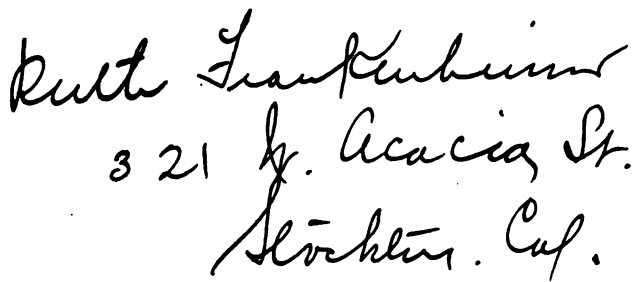 Ruth Frankenheimer
321 W. Acacia St.
Stockton. Cal.